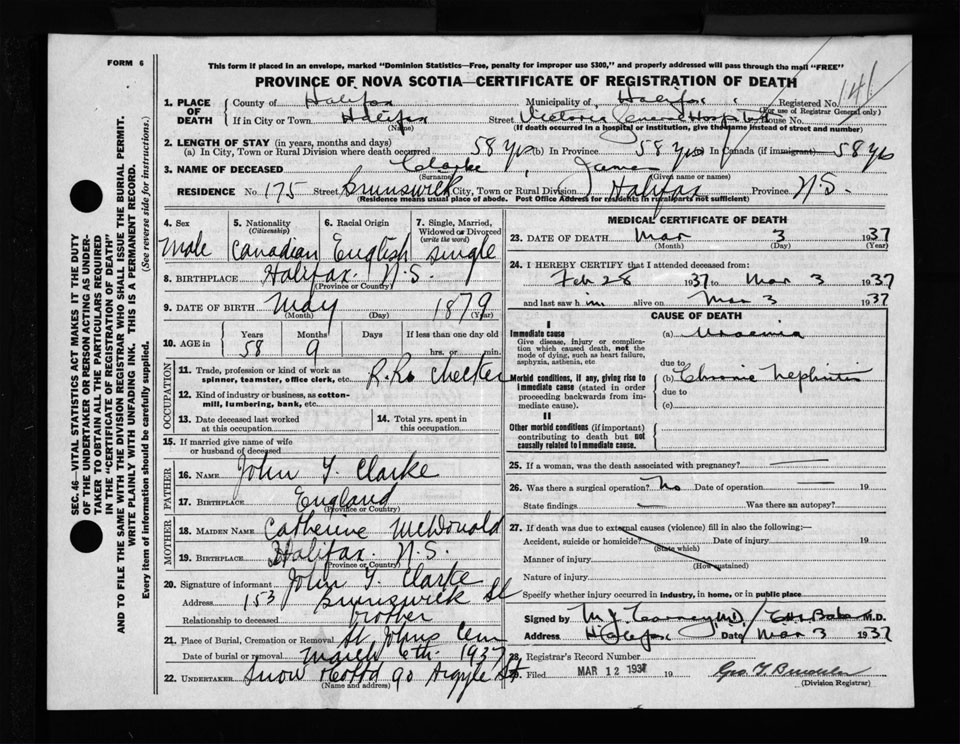 FORM 6
This form if placed in an envelope, marked "Dominion Statistics—Free, penalty for improper use $300," and properly addressed will pass through the mail "FREE"
PROVINCE OF NOVA SCOTIA—CERTIFICATE OF REGISTRATION OF DEATH
141
1. PLACE OF DEATH County of Halifax Municipality of Halifax Registered No.
(For use of Registrar General only)
If in City or Town Halifax Street Victoria General Hospital House No.
(Name) (If death occurred in a hospital or institution, give the name instead of street and number)
2. LENGTH OF STAY (in years, months and days)
(a) In City, Town or Rural Division where death occurred 58 yrs (b) In Province 58 yrs (c) In Canada (if immigrant) 58 yrs
3. NAME OF DECEASED Clarke, James
(Surname) (Given name or names)
RESIDENCE No. 175 Street Brunswick City, Town or Rural Division Halifax Province N.S.
(Residence means usual place of abode. Post Office Address for residents in rural parts not sufficient)
4. Sex 5. Nationality 6. Racial Origin 7. Single, Married,
(Citizenship) Widowed or Divorced
(write the word)
Male Canadian English Single
8. BIRTHPLACE Halifax. N.S.
(Province or Country)
9. DATE OF BIRTH May 1879
(Month) (Day) (Year)
10. AGE in Years Months Days If less than one day old
58 9 hrs. or min.
OCCUPATION
11. Trade, profession or kind of work as
spinner, teamster, office clerk, etc. R.R. Checker
12. Kind of industry or business, as cotton-
mill, lumbering, bank, etc.
13. Date deceased last worked at this occupation
14. Total yrs. spent in this occupation
15. If married give name of wife
or husband of deceased
FATHER
16. NAME John Y. Clarke
17. BIRTHPLACE England
(Province or Country)
MOTHER
18. MAIDEN NAME Catherine McDonald
19. BIRTHPLACE Halifax. N.S.
(Province or Country)
20. Signature of informant John Y. Clarke
Address 153 Brunswick St
Relationship to deceased brother
21. Place of Burial, Cremation or Removal St. Johns Cem
Date of burial or removal March 6th 1937
22. UNDERTAKER Snow 90 Argyle St
(Name and address)
MEDICAL CERTIFICATE OF DEATH
23. DATE OF DEATH Mar 3 1937
(Month) (Day) (Year)
24. I HEREBY CERTIFY that I attended deceased from:
Feb 28 1937 to Mar 3 1937
and last saw him alive on Mar 3 1937
CAUSE OF DEATH
I
Immediate cause (a) Uraemia
Give disease, injury or complication which caused death, not the mode of dying, such as heart failure, asphyxia, asthenia, etc.
due to
Morbid conditions, if any, giving rise to immediate cause (stated in order proceeding backwards from immediate cause). (b) Chronic Nephritis
due to
(c)
II
Other morbid conditions (if important) contributing to death but not causally related to immediate cause.
25. If a woman, was the death associated with pregnancy?
26. Was there a surgical operation? No Date of operation 19
State findings Was there an autopsy?
27. If death was due to external causes (violence) fill in also the following:—
Accident, suicide or homicide? Date of injury 19
(State which)
Manner of injury
(How sustained)
Nature of injury
Specify whether injury occurred in industry, in home, or in public place
Signed by M.D. M.D.
Address Halifax Date Mar 3 1937
28. Registrar's Record Number
Filed MAR 12 1937 19
(Division Registrar)
SEC. 46—VITAL STATISTICS ACT MAKES IT THE DUTY
OF THE UNDERTAKER OR PERSON ACTING AS UNDER-
TAKER TO OBTAIN ALL THE PARTICULARS REQUIRED
IN THE "CERTIFICATE OF REGISTRATION OF DEATH"
AND TO FILE THE SAME WITH THE DIVISION REGISTRAR WHO SHALL ISSUE THE BURIAL PERMIT.
WRITE PLAINLY WITH UNFADING INK. THIS IS A PERMANENT RECORD.
Every item of information should be carefully supplied. (See reverse side for instructions.)